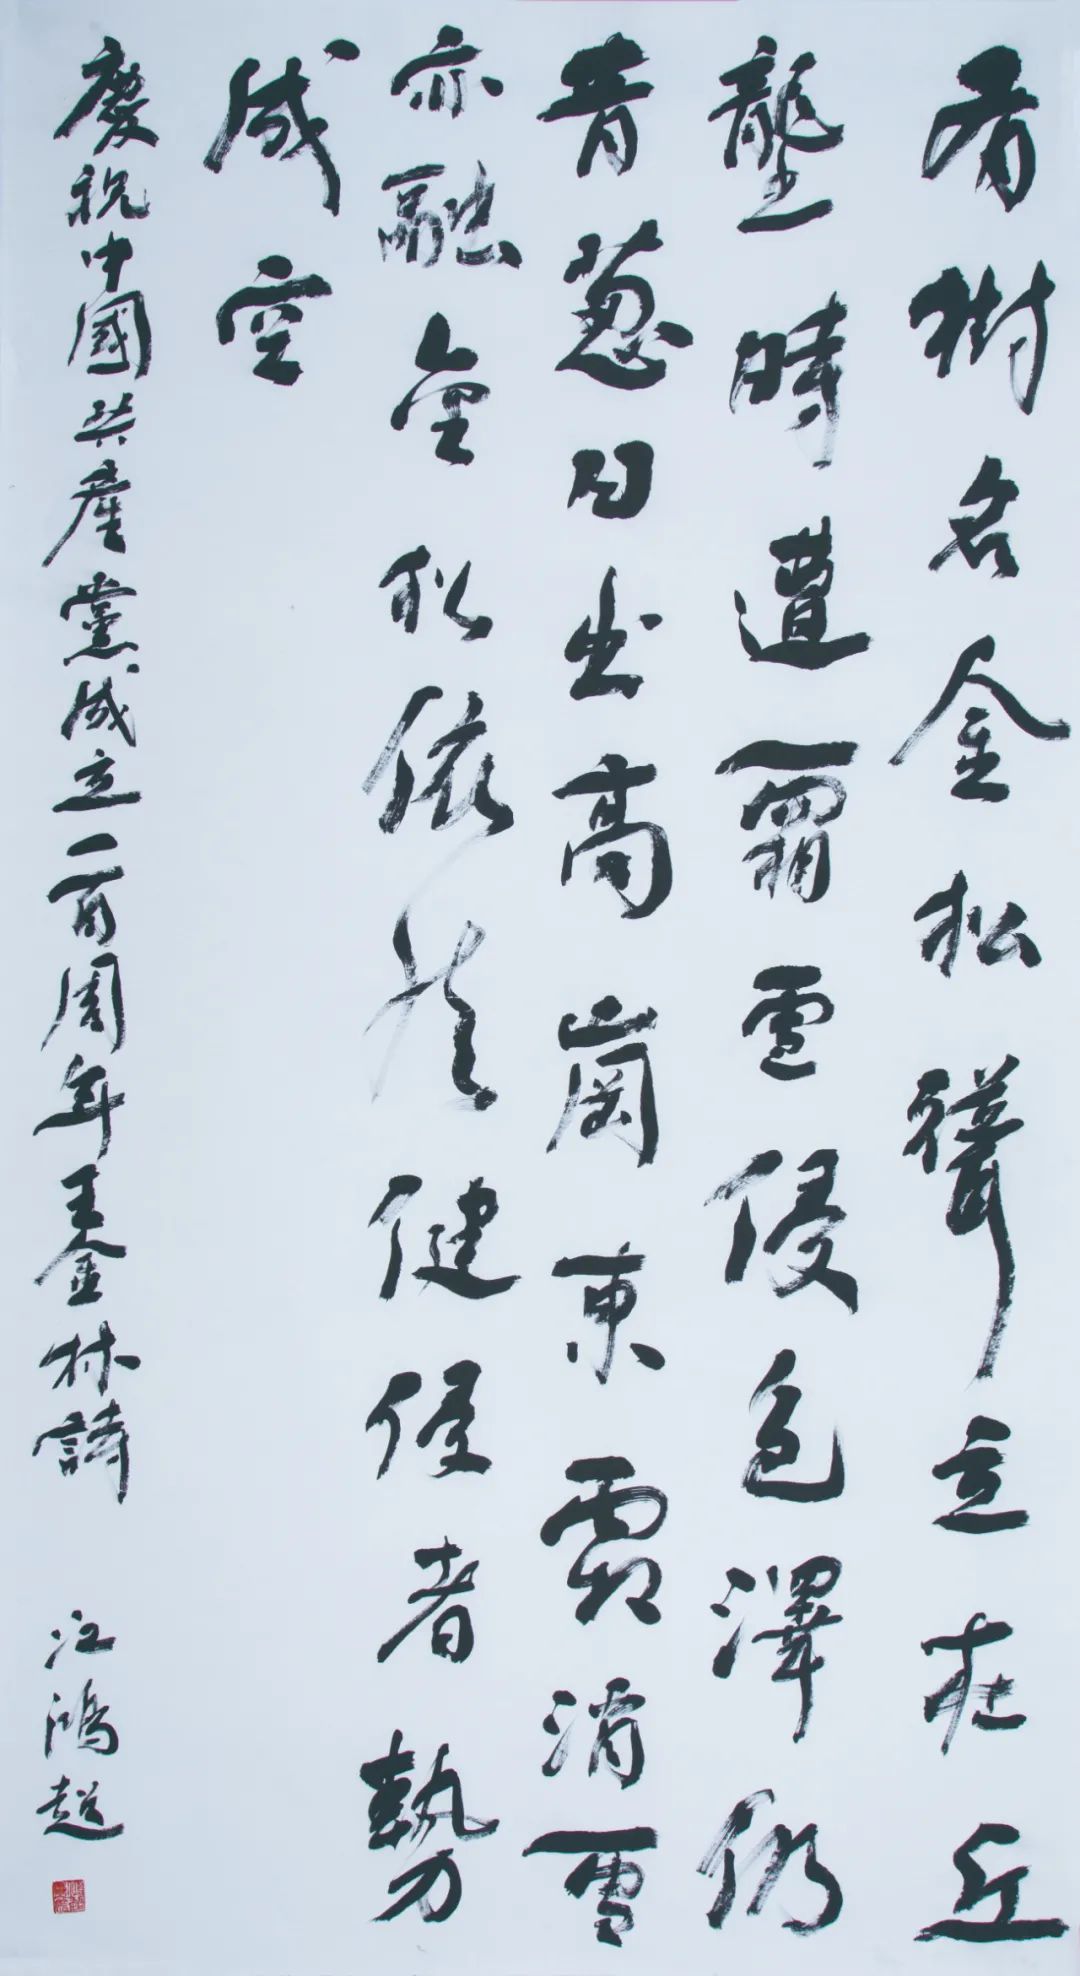 有樹名金松聳立在丘
壟時遭霜雪侵色澤仍
青葱日出高崗東霜消雪
亦融金松依然健侵者勢
成空
慶祝中國共產黨成立一百周年王金林詩
江鴻趙